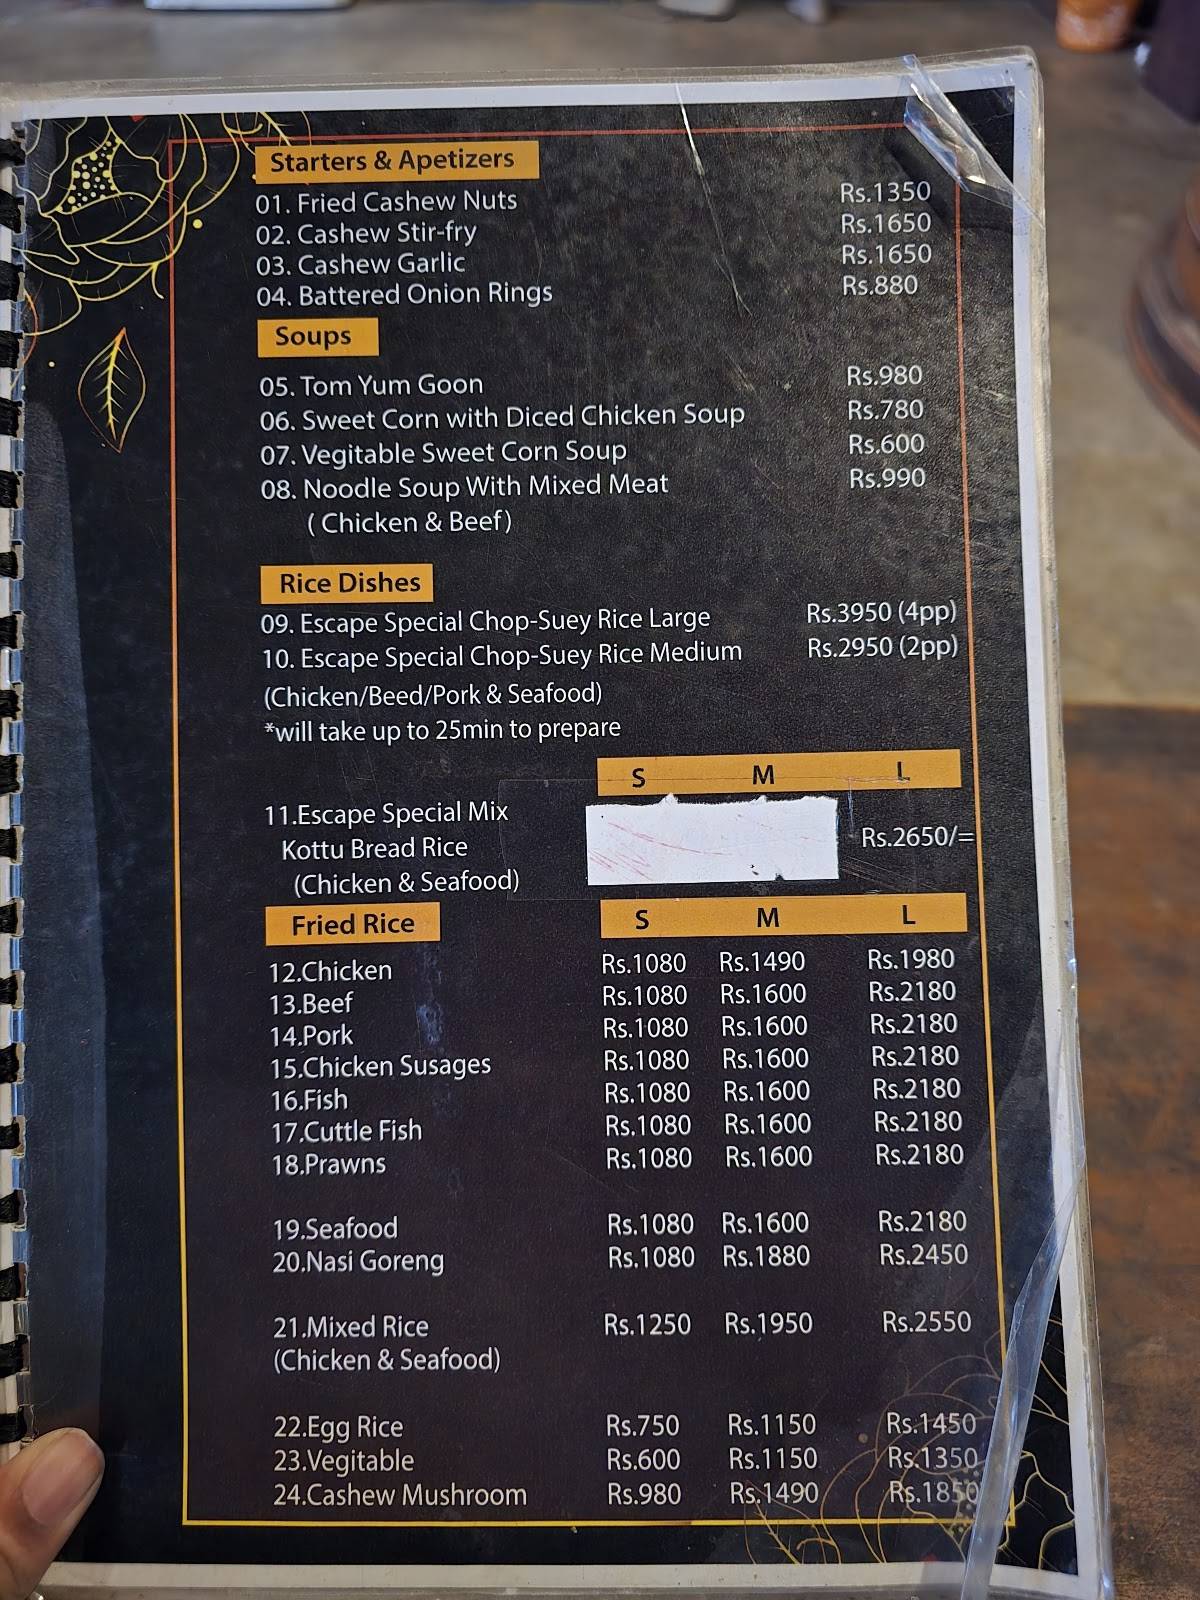 Starters & Apetizers
01. Fried Cashew Nuts Rs.1350
02. Cashew Stir-fry Rs.1650
03. Cashew Garlic Rs.1650
04. Battered Onion Rings Rs.880
Soups
05. Tom Yum Goon Rs.980
06. Sweet Corn with Diced Chicken Soup Rs.780
07. Vegitable Sweet Corn Soup Rs.600
08. Noodle Soup With Mixed Meat Rs.990
( Chicken & Beef)
Rice Dishes
09. Escape Special Chop-Suey Rice Large Rs.3950 (4pp)
10. Escape Special Chop-Suey Rice Medium Rs.2950 (2pp)
(Chicken/Beed/Pork & Seafood)
*will take up to 25min to prepare
S M L
11.Escape Special Mix
Kottu Bread Rice Rs.2650/=
(Chicken & Seafood)
Fried Rice S M L
12.Chicken Rs.1080 Rs.1490 Rs.1980
13.Beef Rs.1080 Rs.1600 Rs.2180
14.Pork Rs.1080 Rs.1600 Rs.2180
15.Chicken Susages Rs.1080 Rs.1600 Rs.2180
16.Fish Rs.1080 Rs.1600 Rs.2180
17.Cuttle Fish Rs.1080 Rs.1600 Rs.2180
18.Prawns Rs.1080 Rs.1600 Rs.2180
19.Seafood Rs.1080 Rs.1600 Rs.2180
20.Nasi Goreng Rs.1080 Rs.1880 Rs.2450
21.Mixed Rice Rs.1250 Rs.1950 Rs.2550
(Chicken & Seafood)
22.Egg Rice Rs.750 Rs.1150 Rs.1450
23.Vegitable Rs.600 Rs.1150 Rs.1350
24.Cashew Mushroom Rs.980 Rs.1490 Rs.1850